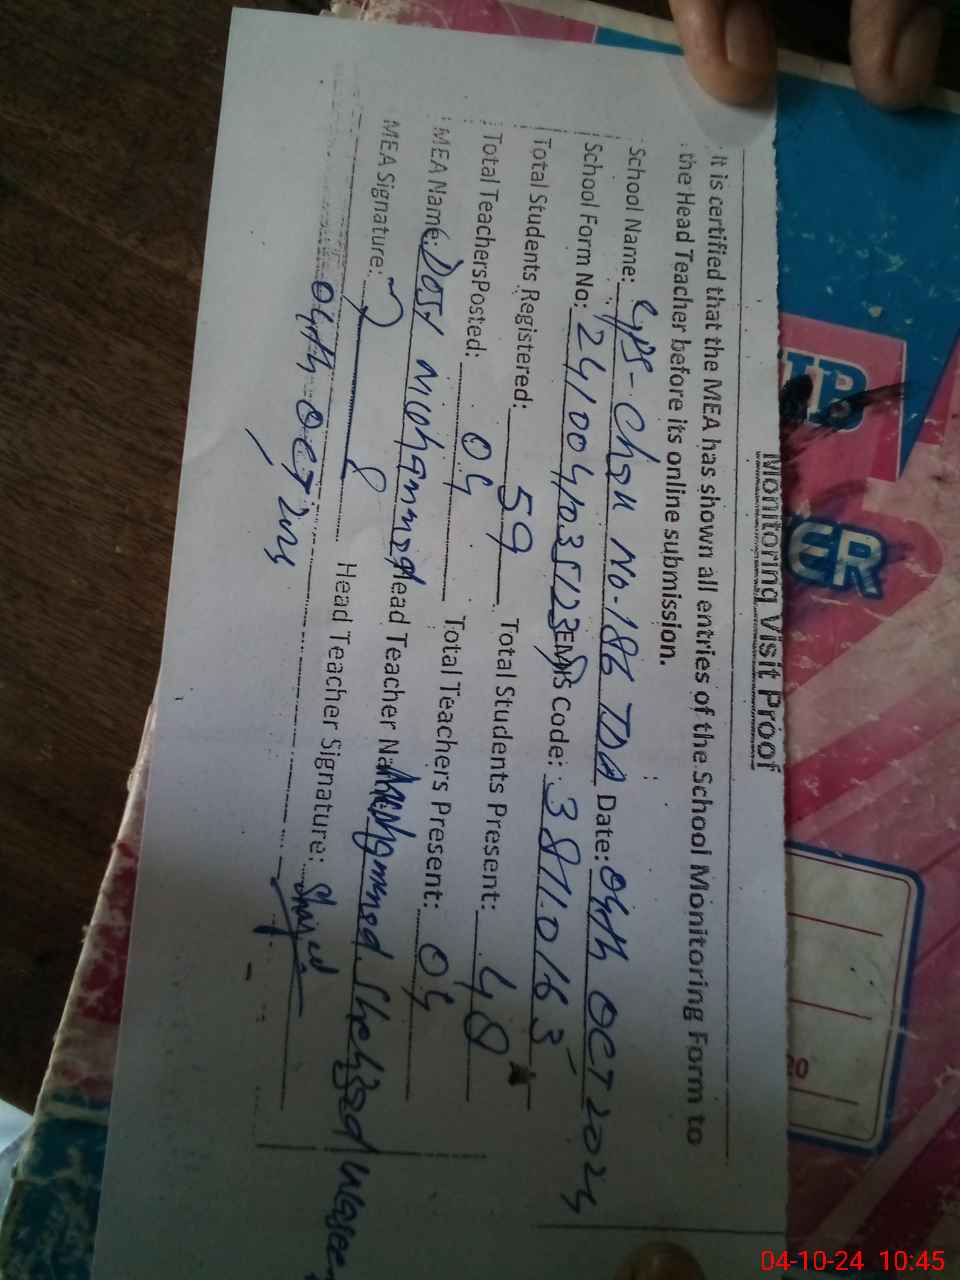 Monitoring Visit Proof
It is certified that the MEA has shown all entries of the School Monitoring Form to
the Head Teacher before its online submission.
School Name: GPS - Chak No-186 TDA Date: 04th OCT 2024
School Form No: EMIS Code:
Total Students Registered: 59 Total Students Present: 48
Total TeachersPosted: 04 Total Teachers Present: 04
MEA Name: DOST Mohammad Head Teacher Name: Mohammad Shehzad
MEA Signature: Head Teacher Signature:
04th OCT 2024
TB
ER
20
04-10-24 10:45